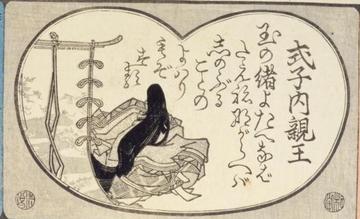 式子内親王
玉の緒よたえなば
たえねながらへば
志のぶる
ことの
よわり
もぞ
する